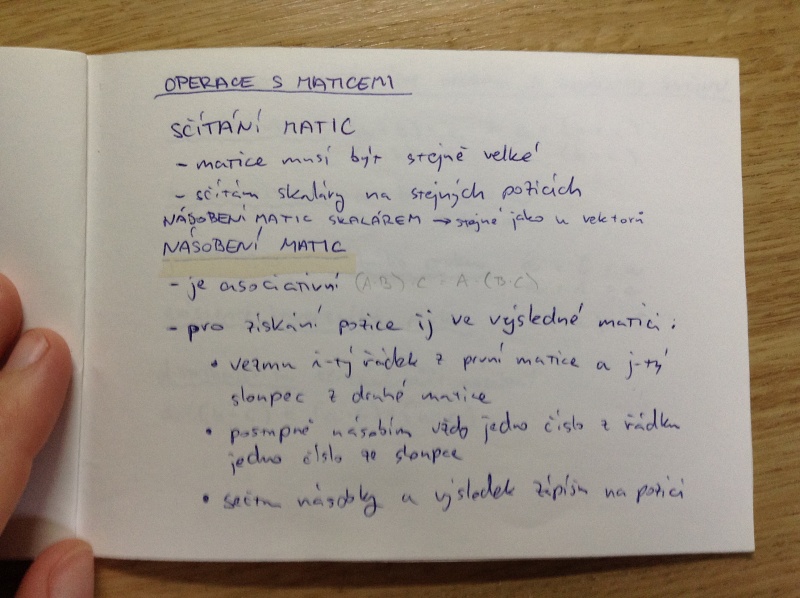 OPERACE S MATICEMI
SČÍTÁNÍ MATIC
- matice musí být stejně velké
- sčítám skaláry na stejných pozicích
NÁSOBENÍ MATIC SKALÁREM → stejné jako u vektorů
NÁSOBENÍ MATIC
- je asociativní (A·B)·C = A·(B·C)
- pro získání pozice ij ve výsledné matici:
• vezmu i-tý řádek z první matice a j-tý
sloupec z druhé matice
• postupně násobím vždy jedno číslo z řádku
jedno číslo ze sloupce
• sečtu násobky a výsledek zapíšu na pozici